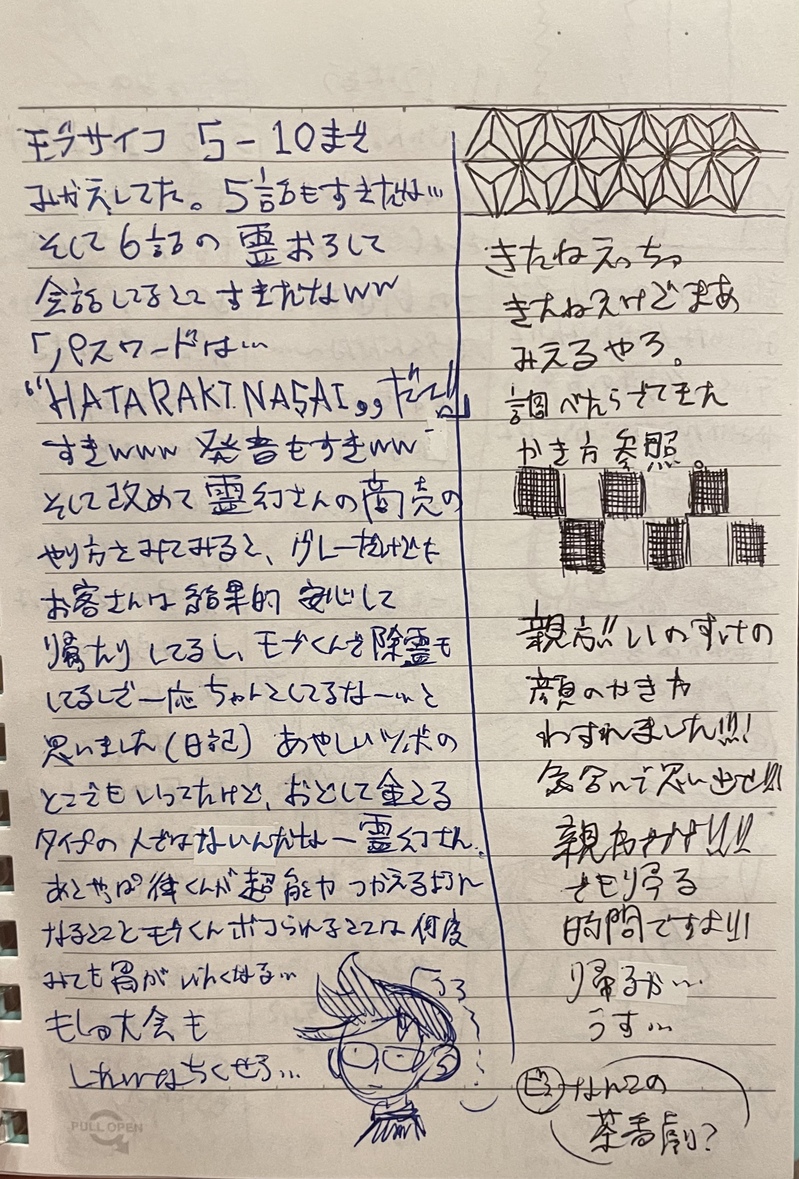 モブサイコ 5-10まで
みかえしてた。5話もすきだな…
そして6話の霊おろして
会話してるとこ すきだなww
「パスワードは…
“HATARAKINASAI„だ!!」
すきwww 発音もすきww
そして改めて霊幻さんの商売の
やり方をみてみると、グレーだけども
お客さんは結果的 安心して
帰ったりしてるし、モブくんで除霊も
してるしで一応ちゃんとしてるな〜…と
思いました(日記) あやしいツボの
とこでもいってたけど、おどして金とる
タイプの人ではないんだな〜霊幻さん。
あとやっぱ律くんが超能力つかえるように
なるとことモブくんボコられるとこは何度
みても胃がいたくなる…
もしゅ大会も
したいなちくせう…
きたねえっちゅ
きたねえけどまあ
みえるやろ。
調べたらでてきた
かき方参照。
親方!!いのすけの
顔のかき方
わすれました!!!
気合いで思い出せ!!!
親方ァァ!!!
そもそも帰る
時間ですよ!!!
帰るか…
うす…
なんこの
茶番劇?
PULL OPEN